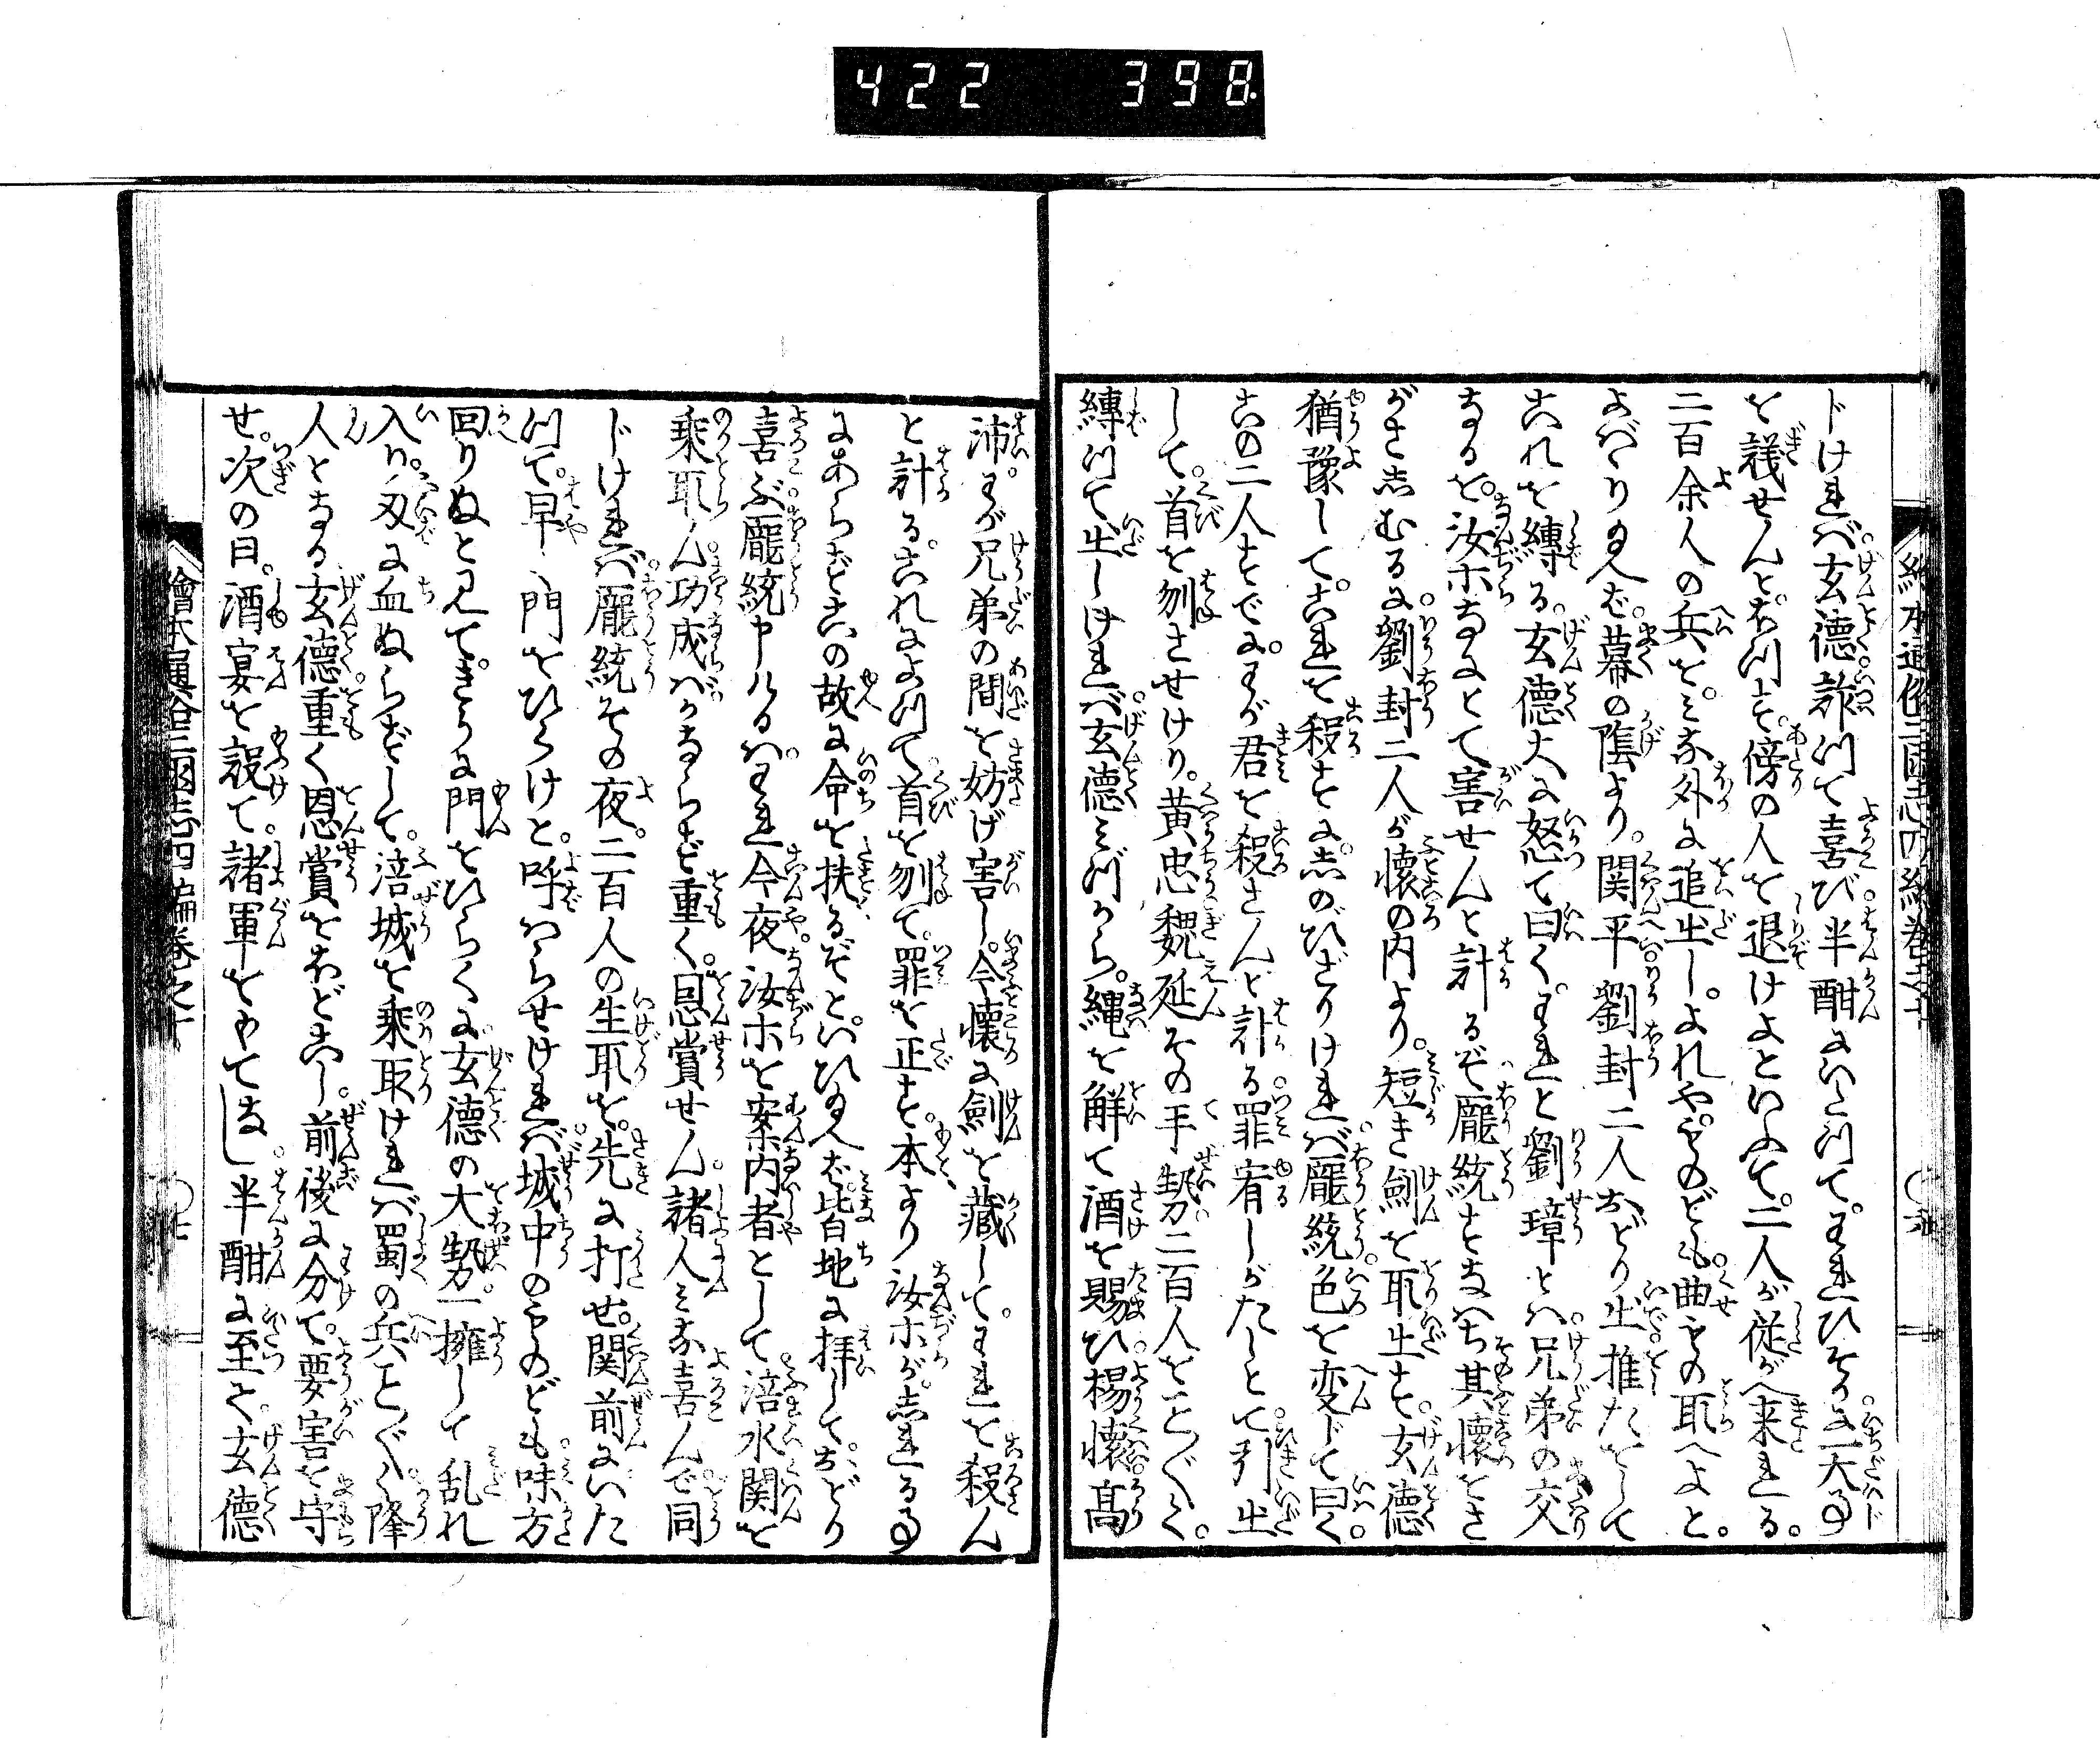 422 398
ドければ。玄徳詐つて喜び半酣にいたつて。われひそかに一大事
を議せんとおもつて。傍の人を退けよといふて。二人が従がへ来れる。
二百余人の兵を。みな外に追出し。よれや。ものども。曲もの取へよと。
よばゝり給へば。幕の蔭より。関平劉封二人おどり出推たをして
これを縛る。玄徳大に怒て曰く。われと劉璋とハ兄弟の交
なるを。汝ホなにとて害せんと計るぞ龐統すなハち其懐をさ
がさしむるに劉封二人が懐の内より。短き剣を取出す。玄徳
猶豫して。これを殺すに。しのびざりければ龐統色を変ドて曰く。
この二人すでに。わが君を殺さんと計る罪宥しがたしとて引出
して。首を刎させけり。黄忠魏延その手勢二百人をこと〴〵く。
縛つて出しければ玄徳みづから。縄を解て酒を賜ひ楊懐高
沛。わが兄弟の間を妨げ害し。今懐に剣を蔵して。われを殺さん
と計る。これによつて首を刎て。罪を正す。本より汝ホが。しれる事
にあらずこの故に命を扶るぞと。いひ給へば皆地に拝して。おどり
喜ぶ龐統申けるハ。われ今夜汝ホを案内者として涪水関を
乗取ん功成バかならず重く。恩賞せん諸人みな喜んで同
ドければ龐統その夜。二百人の生取を。先に打せ。関前にいた
つて。早々門をひらけと。呼ハらせければ城中のものども味方
回りぬと見て。きうに門をひらくに。玄徳の大勢一擁して乱れ
入り。刃に血ぬらずして。涪城を乗取ければ蜀の兵こと〴〵く降
人となる玄徳重く恩賞をおどこし。前後に分て。要害を守ら
せ。次の日。酒宴を設て。諸軍をもてなし半酣に至て。玄徳
繪本通俗三国志四編巻之十